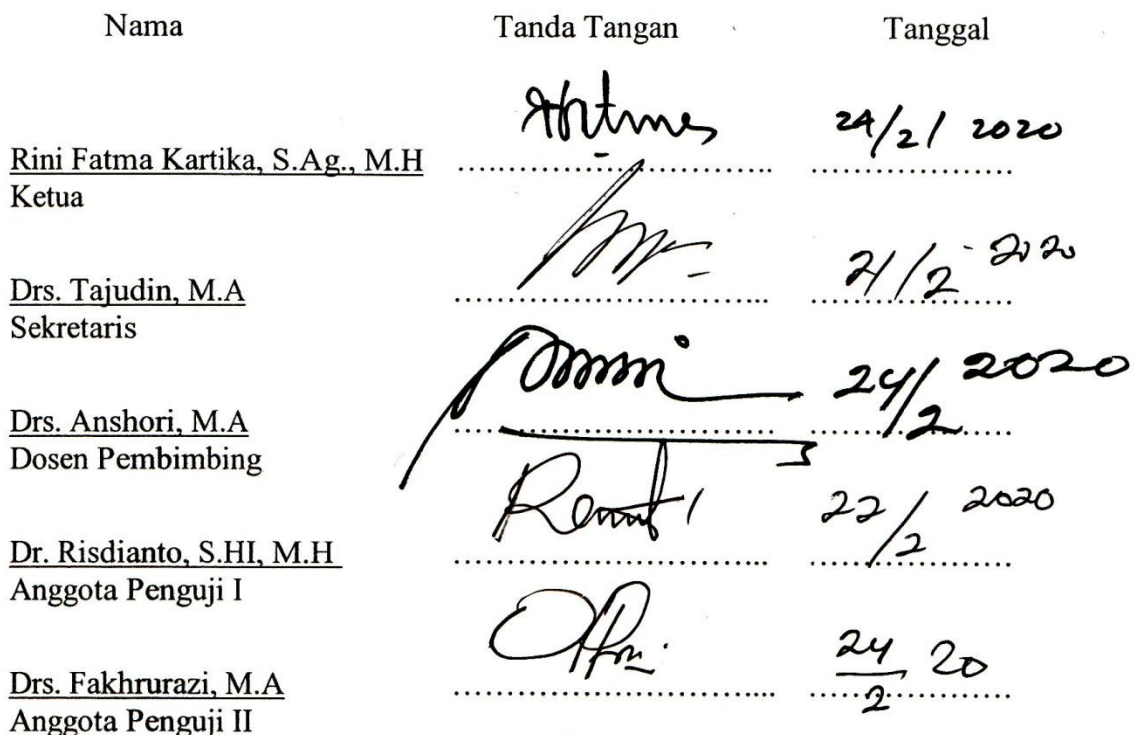 Nama Tanda Tangan Tanggal
24/2/ 2020
Rini Fatma Kartika, S.Ag., M.H ........................... ..................
Ketua
21/2 - 2020
Drs. Tajudin, M.A ........................... ..................
Sekretaris
24/2 2020
Drs. Anshori, M.A ........................... ..................
Dosen Pembimbing
22/2 2020
Dr. Risdianto, S.HI, M.H ........................... ..................
Anggota Penguji I
24/2 20
Drs. Fakhrurazi, M.A ........................... ..................
Anggota Penguji II